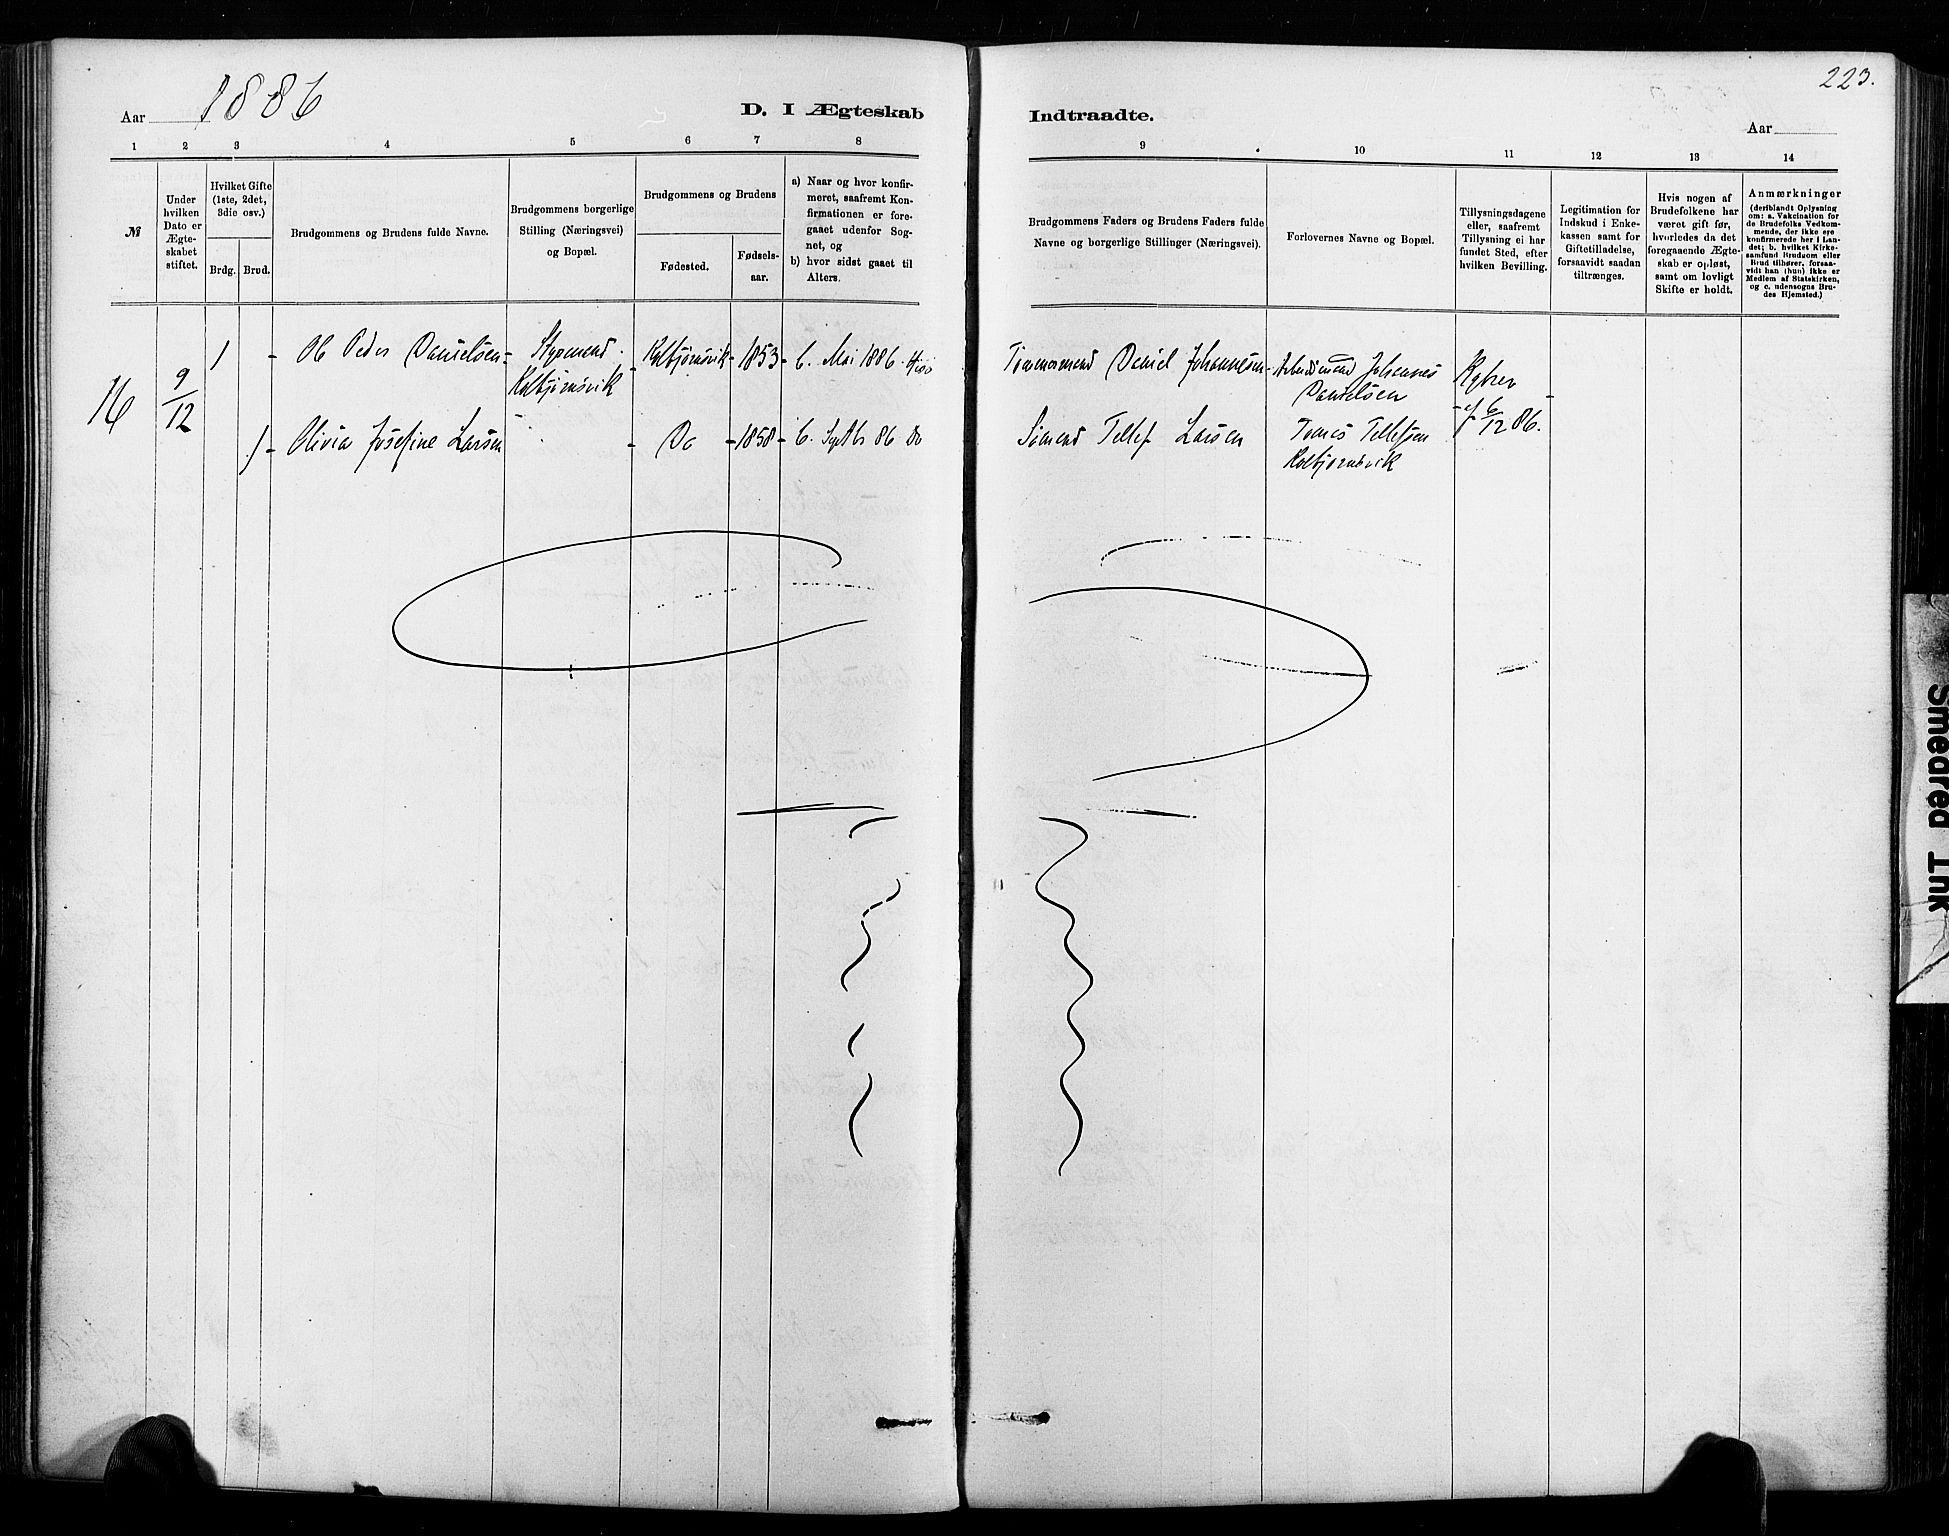 Aar 1886
D. I Ægteskab
Indtraadte.
223.
Aar
1 2 3 4 5 6 7 8
9 10 11 12 13 14
№
Under
hvilken
Dato er
Ægte-
skabet
stiftet.
Hvilket Gifte
(1ste, 2det,
3die osv.)
Brdg. Brud.
Brudgommens og Brudens fulde Navne.
Brudgommens borgerlige
Stilling (Næringsvei)
og Bopæl.
Brudgommens og Brudens
Fødested.
Fødsels-
aar.
a) Naar og hvor konfir-
meret, saafremt Kon-
firmationen er fore-
gaaet udenfor Sog-
net, og
b) hvor sidst gaaet til
Alters.
Brudgommens Faders og Brudens Faders fulde
Navne og borgerlige Stillinger (Næringsvei).
Forlovernes Navne og Bopæl.
Tillysningsdagene
eller, saafremt
Tillysning ei har
fundet Sted, efter
hvilken Bevilling.
Legitimation for
Indskud i Enke-
kassen samt for
Giftetilladelse,
forsaavidt saadan
tiltrænges.
Hvis nogen af
Brudefolkene har
været gift før,
hvorledes da det
foregaaende Ægte-
skab er opløst,
samt om lovligt
Skifte er holdt.
Anmærkninger
(deriblandt Oplysning
om: a. Vakcination for
de Brudefolks Vedkom-
mende, der ikke ere
konfirmerede her i Lan-
det; b. hvilket Kirke-
samfund Brudgom eller
Brud tilhører, forsaa-
vidt han (hun) ikke er
Medlem af Statskirken,
og c. udensogns Bru-
des Hjemsted.)
16
9/12
1 - Ole Peder Danielsen - Kolbjørnsvik - 1853 - b. Mai 1886.
Kolbjørnsvik
Daniel Johannesen - Arbeidsmand Johannes
Danielsen
1 - Olivia Josefine Larsen - Do - 1858 - b. Septbr 86 Do
Sømand Tellef Larsen
Tønnes Tellefsen
Kolbjørnsvik
af 6/12 86.
Smeared Ink